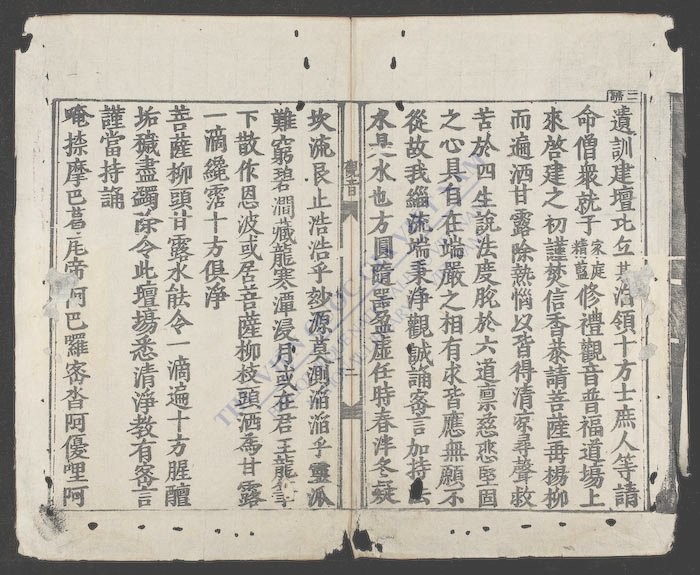 遺訓建壇比丘領十方士庶人等請
命僧衆就于家庭精藍修禮觀音普福道場上
來啓建之初謹焚信香恭請菩薩再揚柳
而遍洒甘露除熱惱以皆得清凉尋聲救
苦於四生說法度脫於六道禀慈悲堅固
之心具自在端嚴之相有求皆應無願不
從故我緇流端秉淨觀誠誦密言加持法
水具水也方圓隨噐盈虛任時春泮冬凝
觀音
二
坎流艮止浩浩乎玅源莫測滔滔乎靈派
難窮碧澗藏龍寒潭浸月或在君王龍筆
下散作恩波或居菩薩柳枝頭洒爲甘露
一滴纔霑十方俱淨
菩薩柳頭甘露水能令一滴遍十方腥膻
垢穢盡蠲除令此壇塲悉清淨教有密言
謹當持誦
唵捺摩巴葛瓦帝阿巴羅密沓阿優哩阿